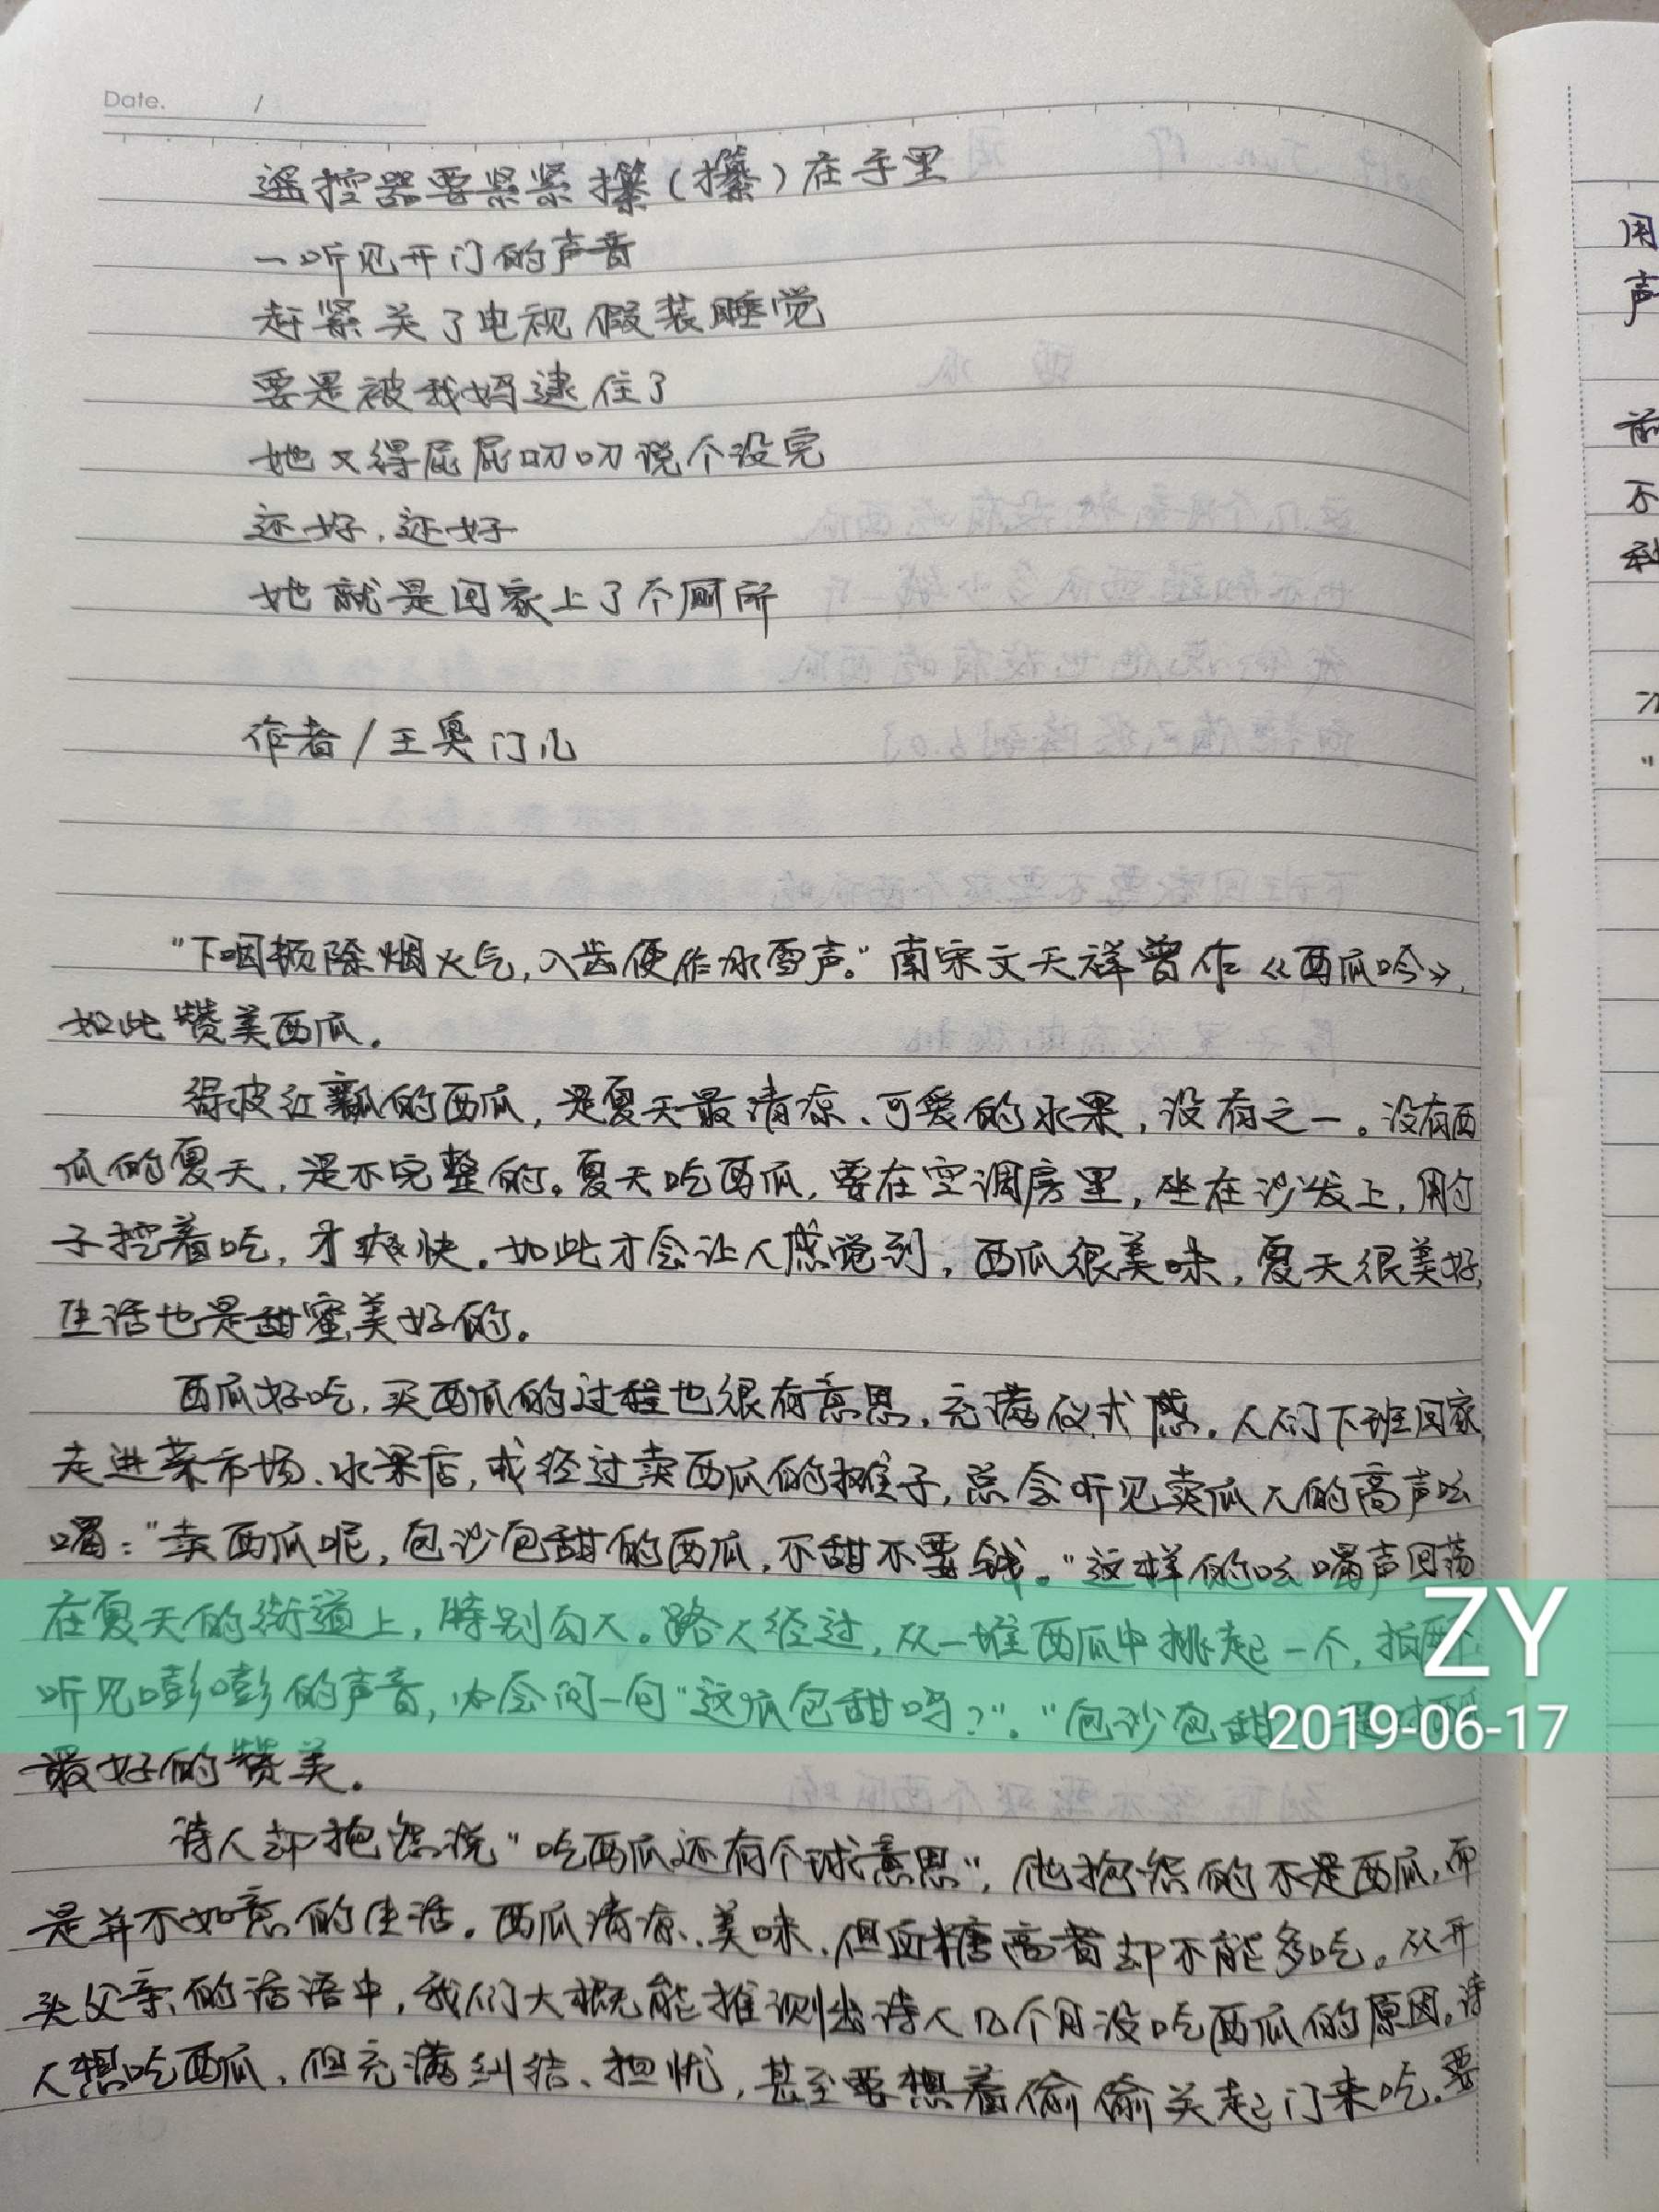 Date. /
遥控器要紧紧攥(攥)在手里
一听见开门的声音
赶紧关了电视假装睡觉
要是被我妈逮住了
她又得屁屁叨叨说个没完
还好,还好
她就是回家上了个厕所
作者/王奥门儿
“下咽顿除烟火气,入齿便作冰雪声。”南宋文天祥曾作《西瓜吟》,
如此赞美西瓜。
绿皮红瓤的西瓜,是夏天最清凉、可爱的水果,没有之一。没有西
瓜的夏天,是不完整的。夏天吃西瓜,要在空调房里,坐在沙发上,用勺
子挖着吃,才爽快。如此才会让人感觉到,西瓜很美味,夏天很美好,
生活也是甜蜜美好的。
西瓜好吃,买西瓜的过程也很有意思,充满仪式感。人们下班回家,
走进菜市场、水果店,或经过卖西瓜的摊子,总会听见卖瓜人的高声吆
喝:“卖西瓜呢,包沙包甜的西瓜,不甜不要钱。”这样的吆喝声回荡
在夏天的街道上,特别勾人。路人经过,从一堆西瓜中挑起一个,拍两下
听见嘭嘭的声音,少会问一句“这瓜包甜吗?”。“包沙包甜
最好的赞美。
诗人却抱怨说“吃西瓜还有个球意思”,他抱怨的不是西瓜,而
是并不如意的生活。西瓜清凉、美味,但血糖高者却不能多吃。从开
头父亲的话语中,我们大概能推测出诗人几个月没吃西瓜的原因。诗
人想吃西瓜,但充满纠结、担忧,甚至要想着偷偷关起门来吃。要
ZY
2019-06-17
用
声
前
不